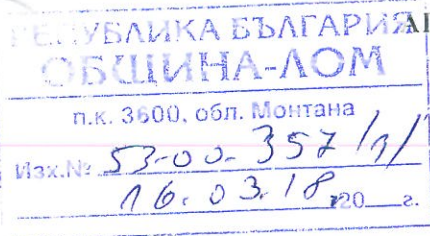 РЕПУБЛИКА БЪЛГАРИЯ
ОБЩИНА-ЛОМ
п.к. 3600, обл. Монтана
Изх.№ 53-00-357/1/
16.03.18 г20__г.